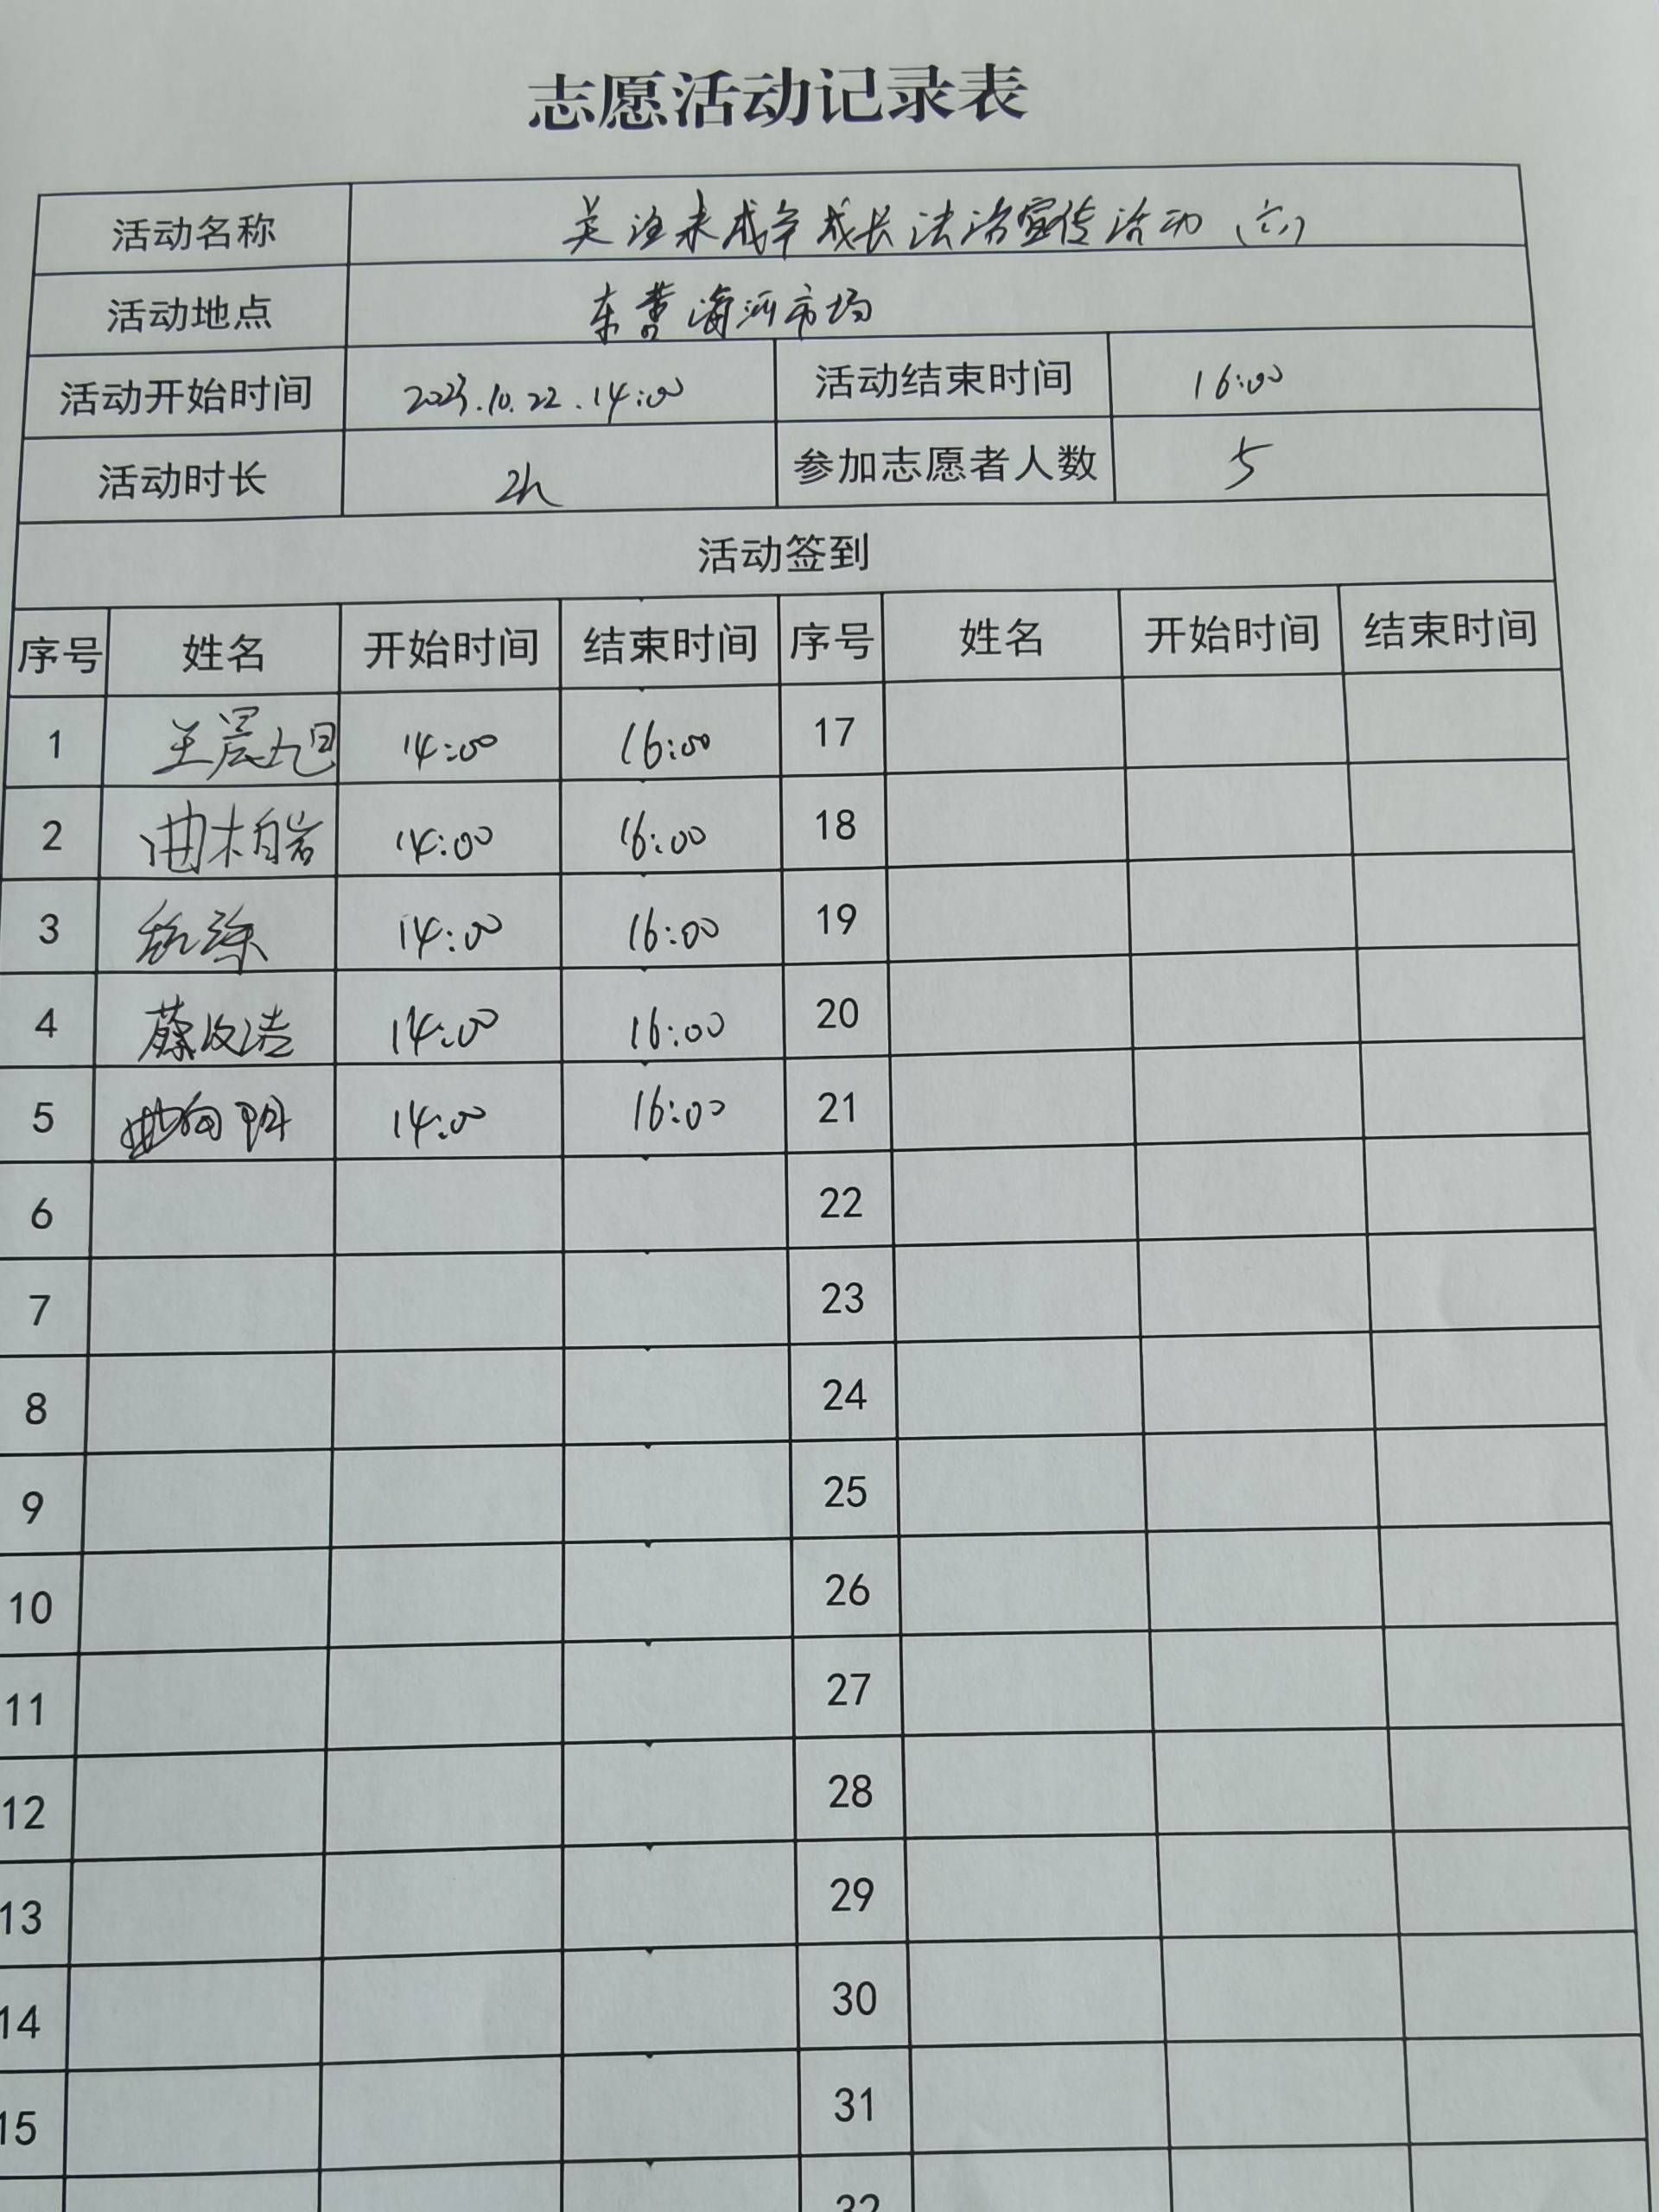 志愿活动记录表
活动名称 关注未成年成长法治宣传活动（六）
活动地点 东营海河市场
活动开始时间 2023.10.22.14:00 活动结束时间 16:00
活动时长 2h 参加志愿者人数 5
活动签到
序号 姓名 开始时间 结束时间 序号 姓名 开始时间 结束时间
1 王晨旭 14:00 16:00 17
2 曲柏岩 14:00 16:00 18
3 14:00 16:00 19
4 14:00 16:00 20
5 14:00 16:00 21
6 22
7 23
8 24
9 25
10 26
11 27
12 28
13 29
14 30
15 31
32